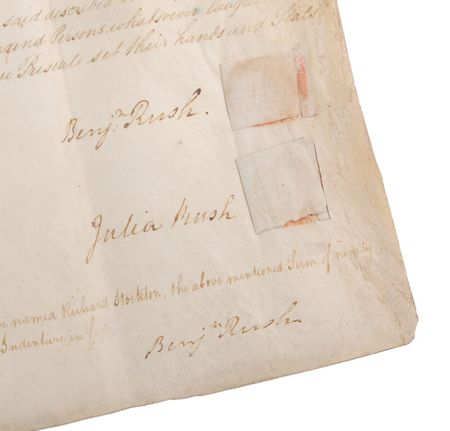 said described
and Persons whatsoever lawful
Presents set their hands and Seals
Benjn. Rush.
Julia Rush
named Richard Stockton, the above mentioned Sum of
Indenture in full
Benjn Rush